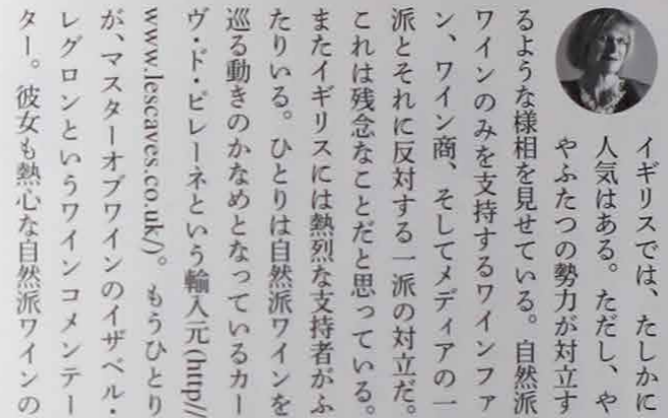 イギリスでは、たしかに
人気はある。ただし、や
やふたつの勢力が対立す
るような様相を見せている。自然派
ワインのみを支持するワインファ
ン、ワイン商、そしてメディアの一
派とそれに反対する一派の対立だ。
これは残念なことだと思っている。
またイギリスには熱烈な支持者がふ
たりいる。ひとりは自然派ワインを
巡る動きのかなめとなっているカー
ヴ・ド・ピレーネという輸入元(http://
www.lescaves.co.uk/)。もうひとり
が、マスターオブワインのイザベル・
レグロンというワインコメンテー
ター。彼女も熱心な自然派ワインの